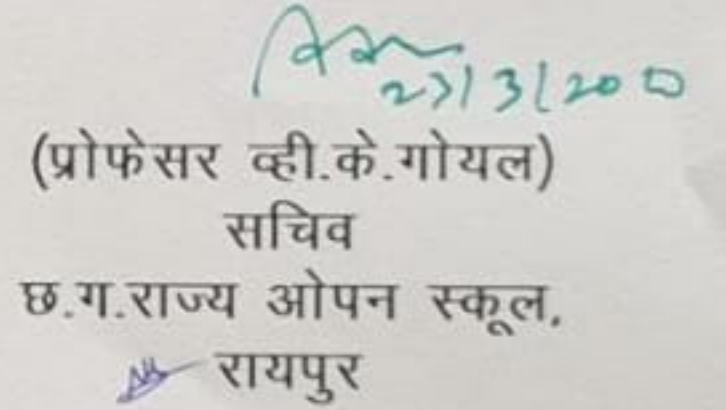 (प्रोफेसर व्ही.के.गोयल)
सचिव
छ.ग.राज्य ओपन स्कूल,
रायपुर